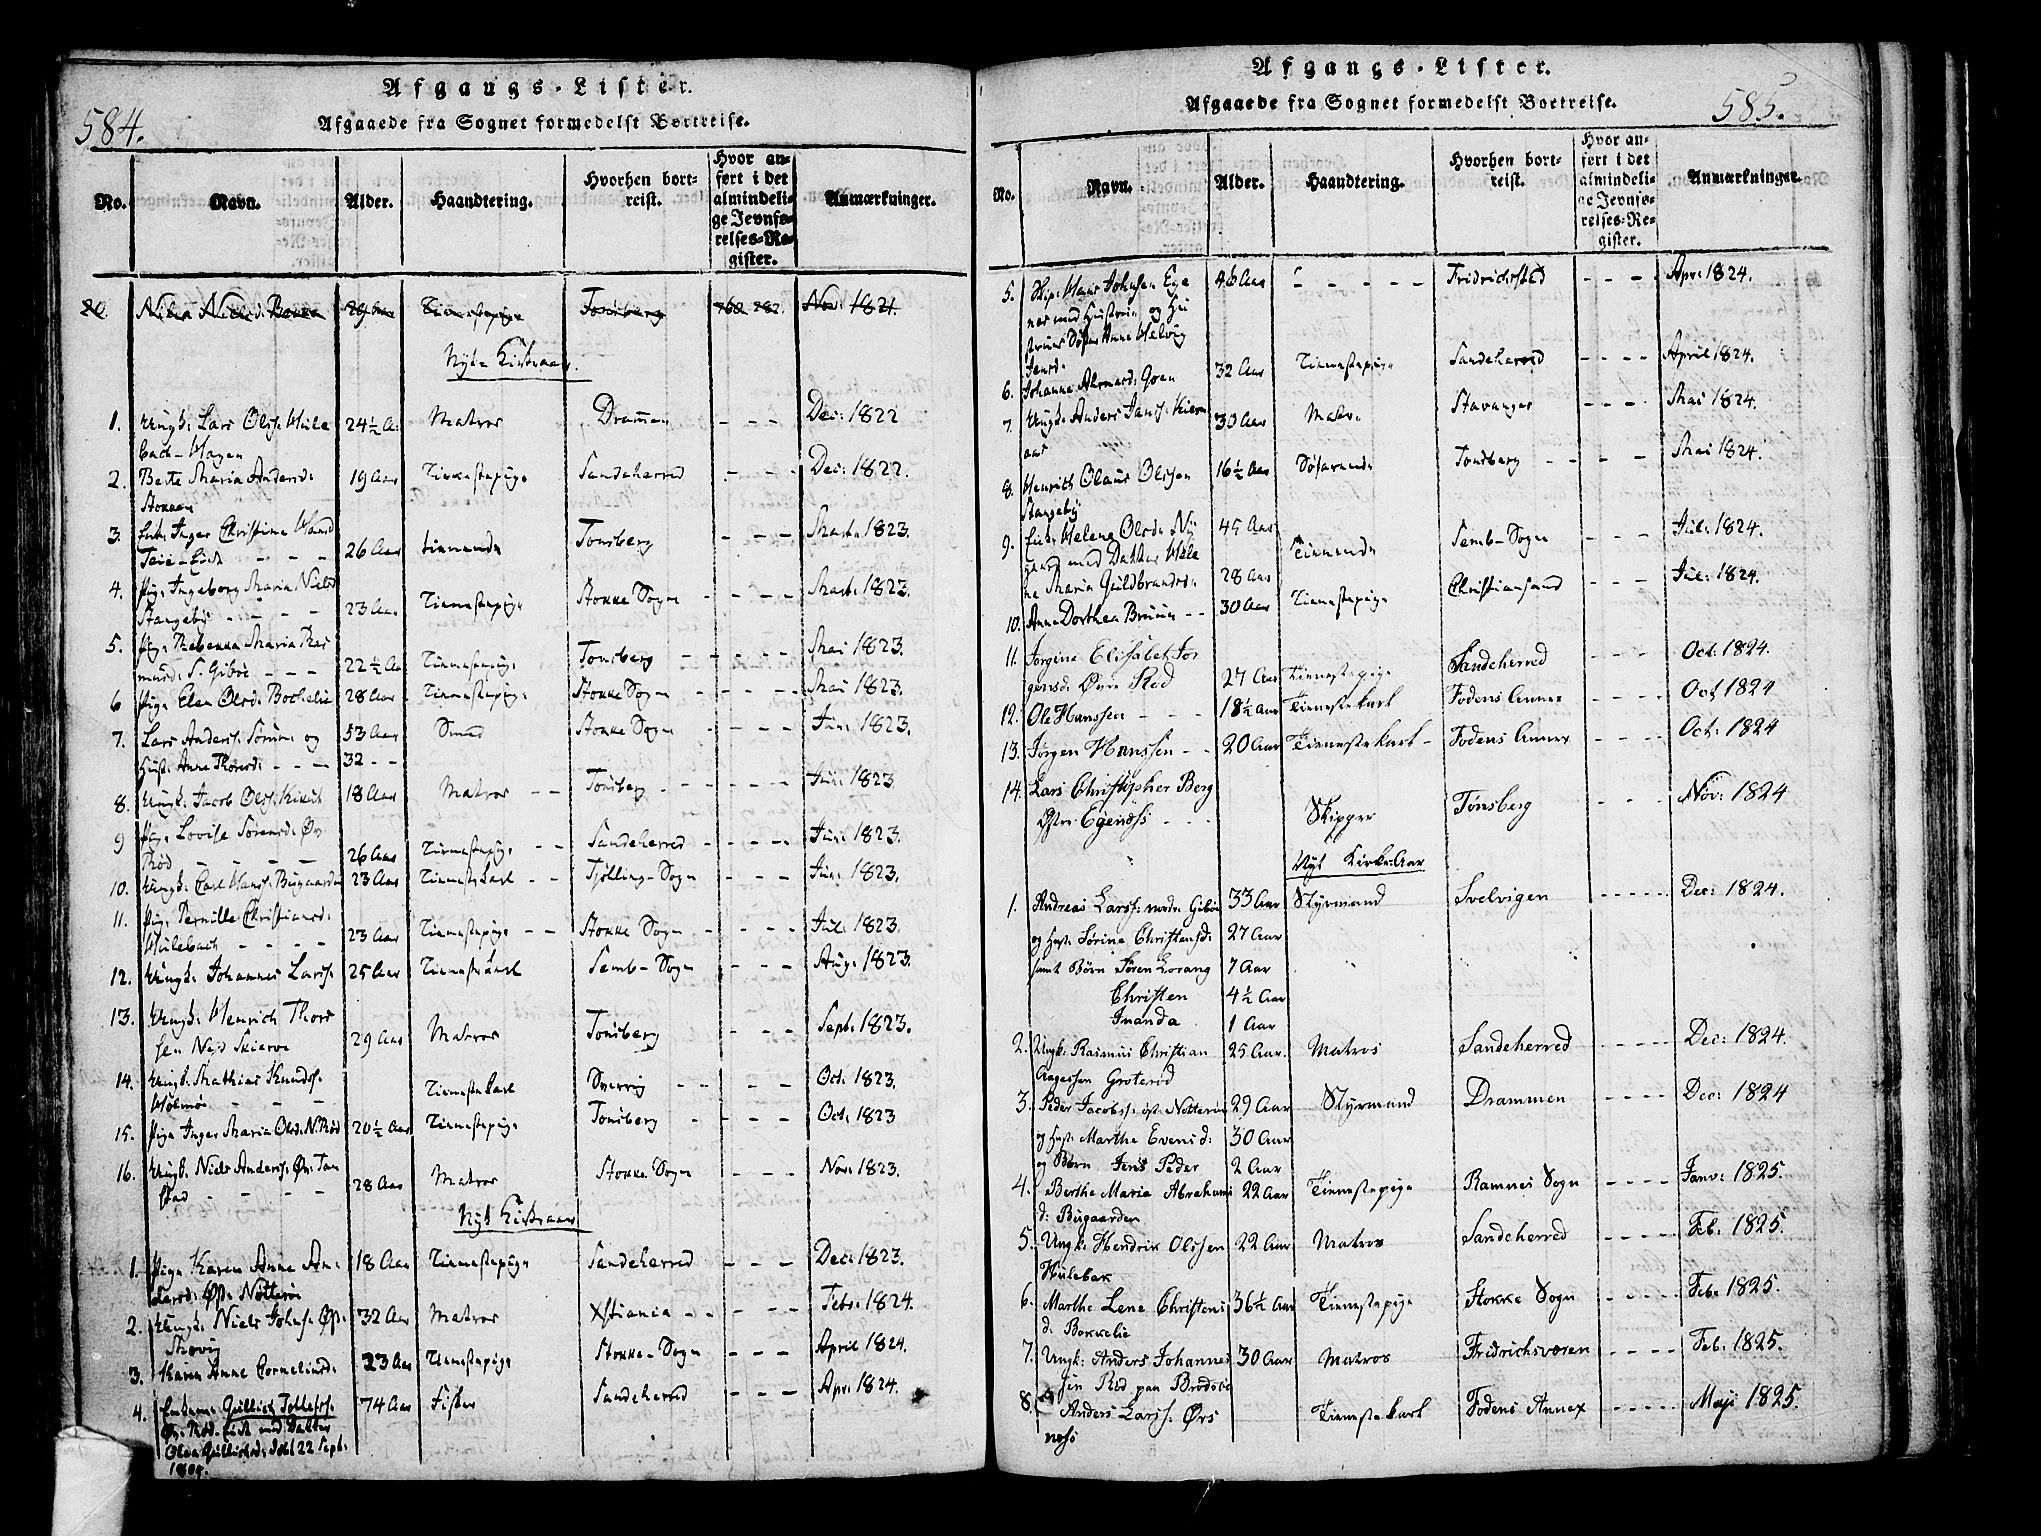 584.
Afgangs-Lister.
Afgaaede fra Sognet formedelst Bortreise.
No. Navn. Alder. Haandtering. Hvorhen bortreist. Hvor anført i det almindelige Jevnførelses-Register. Anmærkninger.
20. Niels 29 Aar Tienestepige Tønsberg 260 282 Nov: 1821.
Nyt Kirkeaar.
1. Ungk: Lars Ols: Hule 24½ A: Matros Drammen - - - Dec: 1822
bach-Hagen
2. Berte Maria Andersd: 19 Aar Tienestepige Sandeherred - - - Dec: 1822.
Stokken
3. Inger Christine
26 Aar tienende Tønsberg - - - Mart: 1823.
4. Pig: Ingeborg Maria Nielsd
Stangebÿ - - - 23 Aar Tienestepige Stokke Sogn - - - - Mart: 1823.
5. Pig: Rebekka Maria Ras
musd: S. Gibøe - - - 22½ Aar Tienestepige Tønsberg - - - - - Mai 1823.
6 Pige Elen Olsd: Bochelie 28 Aar Tienestepige Stokke Sogn - - - - - Mai 1823.
7. Lars Anders: og 53 Aar Smed Stokke Sogn - - - - Jun: 1823.
Hust: Anne Thoresd: - - - 32 - -
8. Ungk: Jacob Ols: 18 Aar Matros - - Tønsberg - - - - - - Jun: 1823
9 Pige Lovise Sørensd: Øv:
Rød - - - - 26 Aar Tienestepige - - Sandeherred - - - - Jun: 1823.
10. Ungk: Carl Hans: Bugaarden 23 Aar Tienestekarl - - Tjølling-Sogn - - - Jun: 1823.
11. Pig: Pernille Christiansd:
Hulebach - - - - 23 Aar Tienestepige - - Stokke Sogn - - - - Jul: 1823.
12. Ungk: Johannes Lars: 25 Aar Tienestekarl Semb-Sogn - - - Aug: 1823.
13. Ungk: Henrich Thors
sen Nes Skierve 29 Aar Matros Tønsberg - - - Sept: 1823.
14. Ungk. Mathias Knuds:
Holmøe - - - Tienestekarl Sverrig - - - Oct: 1823.
15. Pige Inger Maria Olsd: N. Rød 20½ Aar Tienestepige Tønsberg - - - - Oct: 1823
16. Ungk. Niels Anders: Øv: Tan
stad - - - - 28 Aar Matros Stokke Sogn - - - Nov: 1823.
Nyt Kirkeaar
1. Pige Karen Anne An- 18 Aar Tienestepige Sandeherred - - - Dec: 1823.
dersd: Øst: Nøtterøe
2. Ungk: Niels Johns: Øst: 32 Aar Matros Xstiania - - - - - Febr: 1824.
3. Karen Anne Corneliusd: 23 Aar Tienestepige Stokke-Sogn - - - April 1824.
4. Enkem: Gulliek Tollefs: 74 Aar Fisker Sandeherred - - - Apr: 1824.
Øv: Rød med Datter
Olea Gullieksd: født 22 Sept:
1805.
585.
Afgangs-Lister.
Afgaaede fra Sognet formedelst Bortreise.
No. Navn. Alder. Haandtering. Hvorhen bortreist. Hvor anført i det almindelige Jevnførelses-Register. Anmærkninger.
5. Skip: Hans Johnsen Ege 46 Aar - - - - - Fridrichsstad - - - - Apr: 1824.
næs med Hustrue og Hu
strues Søster Anne Helvig
Jensd:
6. Johanne 32 Aar Tienestepige Sandeherred - - - - April 1824.
7. Ungk: Anders Jans: Kiern 30 Aar Matr: Stavanger - - - - Mai 1824.
aas
8. Henrich Olaus Olssen 16½ Aar Søfarende Tønsberg - - - - Mai 1824.
Stangebÿ
9. Enk: Helene Olsd: Nÿ 45 Aar Semb-Sogn - - - Jul: 1824.
gaard med Datter Hele Tienende
ne Maria Guldbrandsd: 28 Aar
10. Anne Dorthea Bruun - - 30 Aar Tienestepige Christiansand - - - - Jul: 1824.
11. Jørgine Elisabet Jør
gensd: Øvre Rød 27 Aar Tienestepige Sandeherred - - - Oct: 1824.
12. Ole Hanssen - - - 18½ Aar Tienestekarl Fodens Annex - - - - Oct 1824
13. Jørgen Hanssen - - 20 Aar Tienestekarl - Fodens Annex - - - - Oct: 1824
14. Lars Christopher Berg
Øster Egenæss - - - Skipper Tønsberg - - - Nov: 1824
Nyt Kirke-Aar
1. Andreas Larss: nedr: Gibøe 33 Aar Styrmand Svelvigen - - - - - Dec: 1824.
og Hust: Sørine Christensd: 27 Aar
samt Børn Søren Lorang 7 Aar
Christen 4½ Aar
Inanda 1 Aar
2. Ungk: Rasmus Christian 25 Aar. Matros Sandeherred - - - - Dec: 1824.
Aagessen Groterød
3. Peder Jacobss: øst: Nøtterøe 29 Aar Styrmand Drammen - - - - Dec: 1824
og Hust: Marthe Evensd: 30 Aar
og Børn Jens Peder 2 Aar
4. Berthe Maria Abrahams 22 Aar Tienestepige Ramnes Sogn - - - - Janv: 1825.
d: Bugaarden
5. Ungk: Hendrik Olssen 22 Aar Matros Sandeherred - - - - Feb: 1825.
Hulebak
6. Marthe Lene Christens 36½ Aar Tienestepige Stokke Sogn - - - - - Feb: 1825.
d: Bokkelie
7. Ungk: Anders Johannes 30 Aar Matros Fridrichsværen - - - - Feb: 1825.
sen Rød paa Brødsøe
8. Anders Larss: Ørs Tienestekarl Fodens Annex - - - - - Maji 1825.
næsø